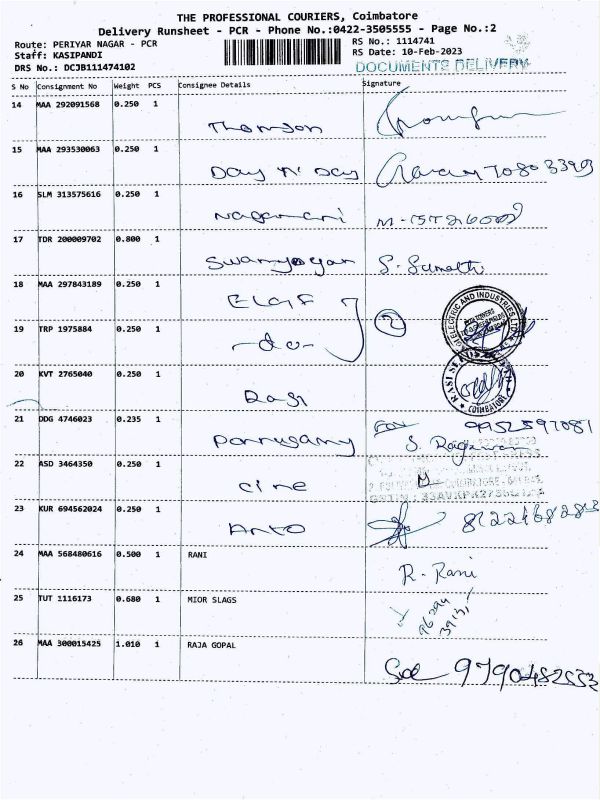 THE PROFESSIONAL COURIERS, Coimbatore
Delivery Runsheet - PCR - Phone No.:0422-3505555 - Page No.:2
Route: PERIYAR NAGAR - PCR
Staff: KASIPANDI
DRS No.: DCJB111474102
RS No.: 1114741
RS Date: 10-Feb-2023
DOCUMENTS DELIVERY
S No Consignment No Weight PCS Consignee Details Signature
14 MAA 292091568 0.250 1
Thomson
15 MAA 293530063 0.250 1
Day N Day
16 SLM 313575616 0.250 1
Nagamani
17 TDR 200009702 0.800 1
Swamyogan S. Sumathi
18 MAA 297843189 0.250 1
ELGF
2
19 TRP 1975884 0.250 1
-do-
ELECTRIC AND INDUSTRIES LTD
20 KVT 2765040 0.250 1
Rasi
COIMBATORE
21 DDG 4746023 0.235 1
9952597081
Ponnusamy S. Ragavan
22 ASD 3464350 0.250 1
Cine
23 KUR 694562024 0.250 1
Anto
24 MAA 568480616 0.500 1 RANI
R. Rani
25 TUT 1116173 0.680 1 MIOR SLAGS
26 MAA 300015425 1.010 1 RAJA GOPAL